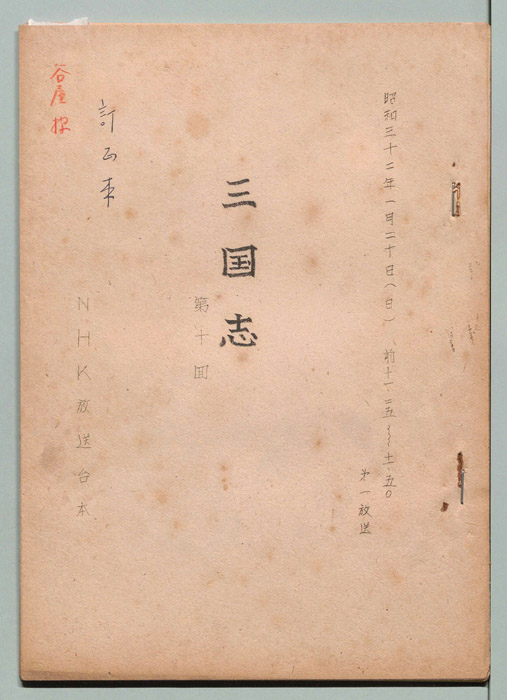 昭和三十二年一月二十日(日) 前十一・二五~十一・五〇
第一放送
三国志
第十回
訂正本
NHK放送台本
谷屋様